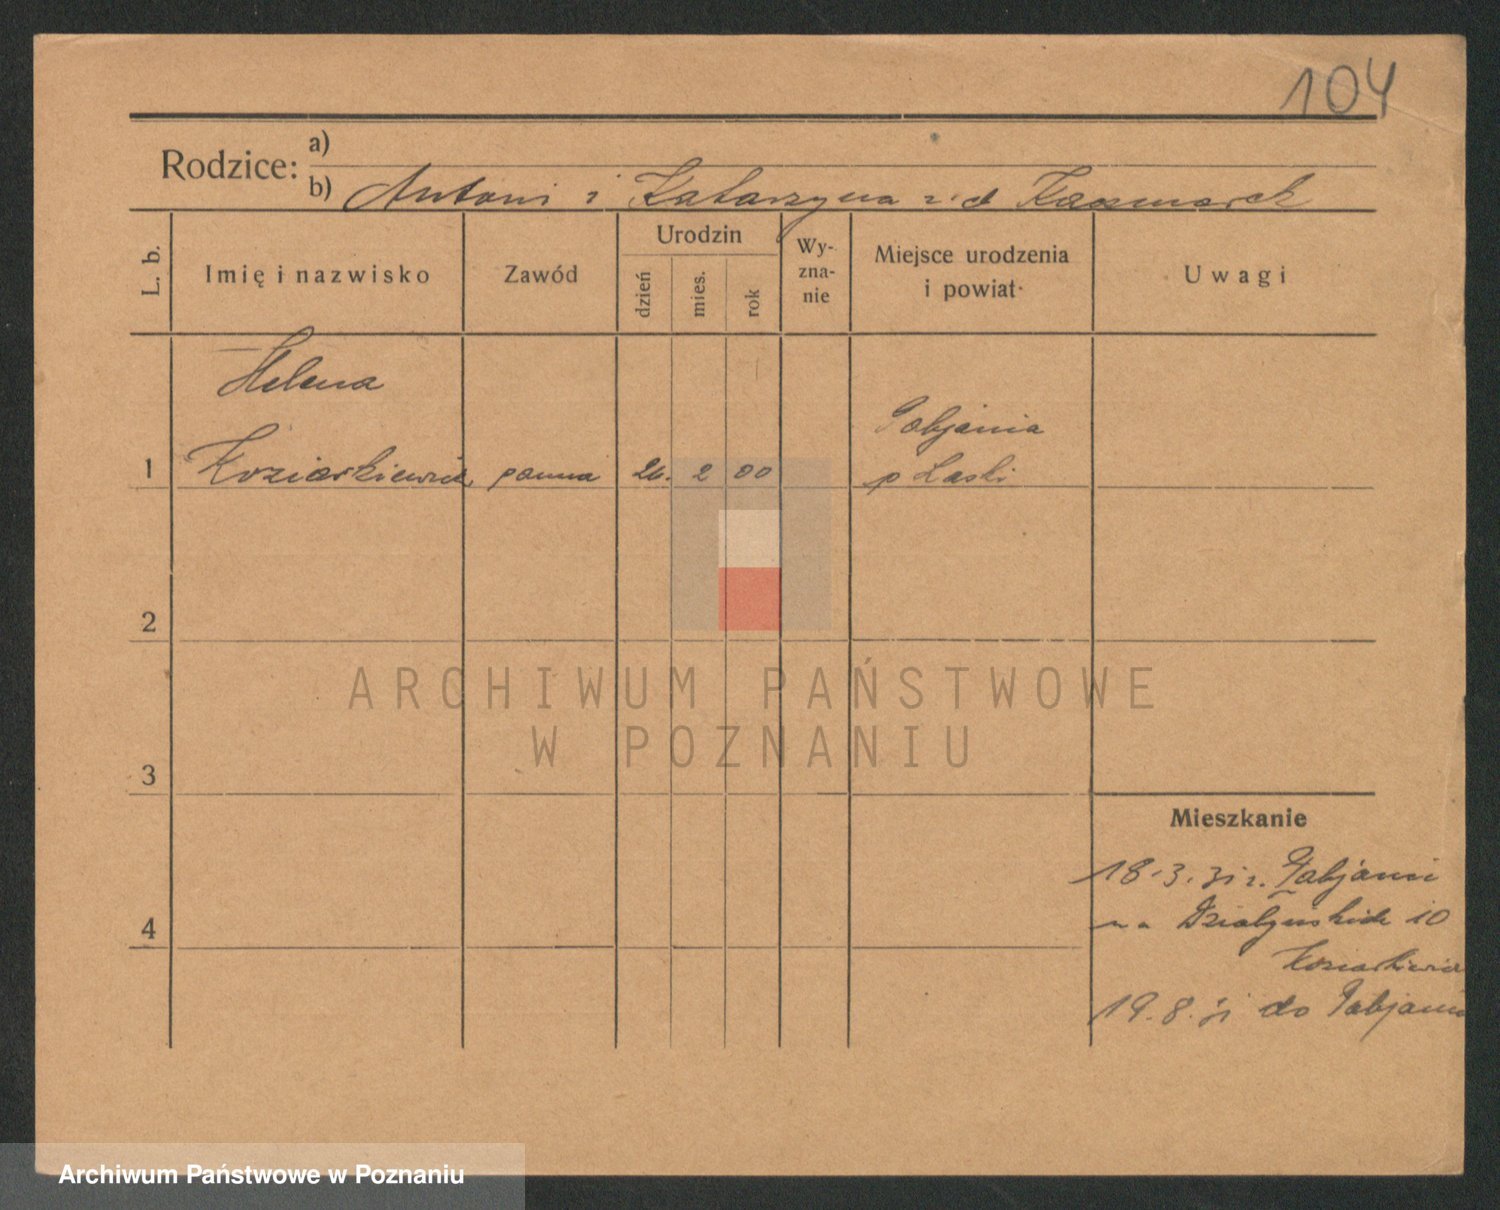 104
Rodzice: a)
b) Antoni i Katarzyna z d Kaczmarek
L. b.
Imię i nazwisko
Zawód
Urodzin
dzień
mies.
rok
Wy-
zna-
nie
Miejsce urodzenia
i powiat
Uwagi
Helena
Koziarkiewicz
1
panna
26. 2 00
Pabjanice
p Laski
2
ARCHIWUM PAŃSTWOWE
W POZNANIU
3
4
Mieszkanie
18.3.31 z. Pabjanic
na Działyńskich 10
Koziarkiewicz
19.8.31 do Pabjanic
Archiwum Państwowe w Poznaniu